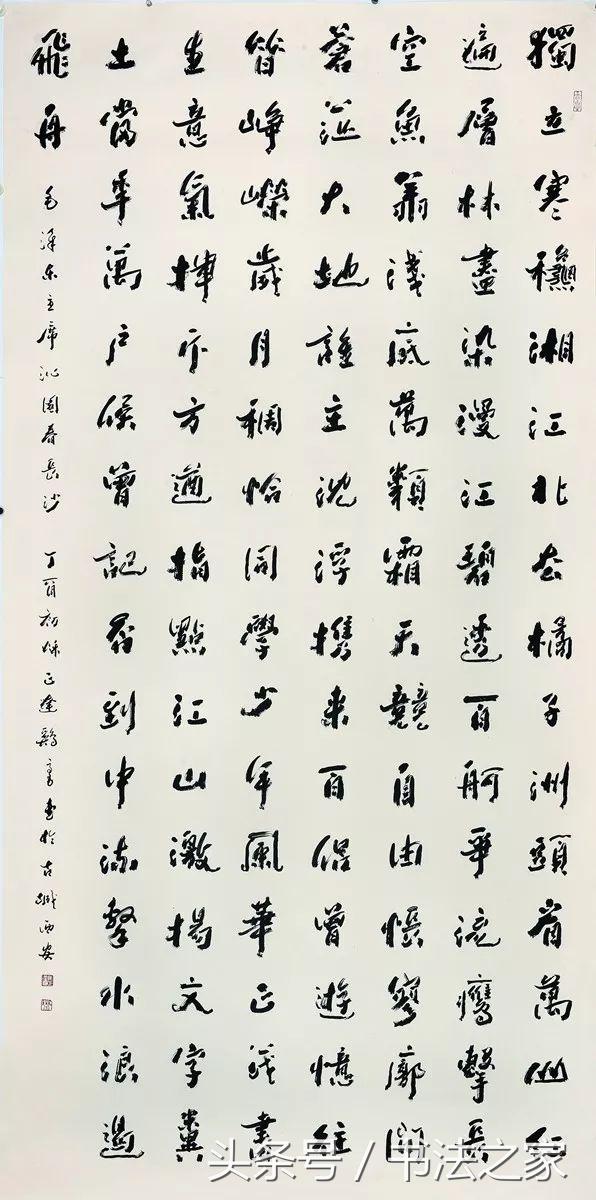 獨立寒龝湘江北去橘子洲頭看萬山紅
遍層林盡染漫江碧透百舸爭流鷹擊長
空魚翔淺底萬類霜天競自由悵寥廓問
蒼茫大地誰主沈浮攜來百侶曾遊憶往
昔崢嶸歲月稠恰同學少年風華正茂書
生意氣揮斥方遒指點江山激揚文字糞
土當年萬戶侯曾記否到中流擊水浪遏
飛舟
毛澤東主席沁園春長沙 丁酉初秋 於古城西安
头条号 / 书法之家